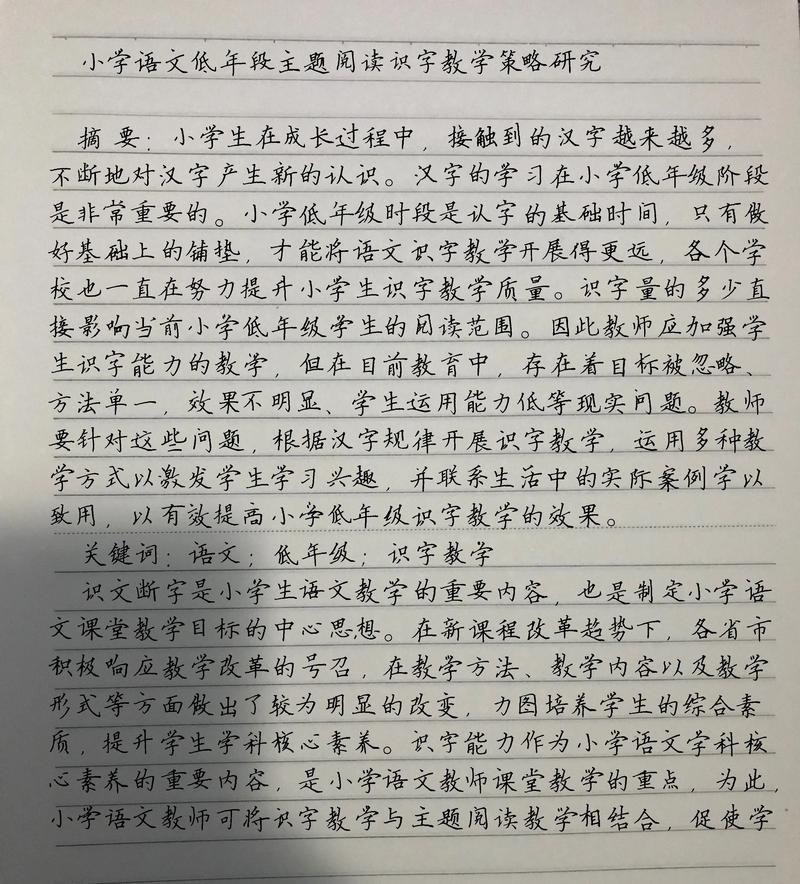 小学语文低年段主题阅读识字教学策略研究
摘要：小学生在成长过程中，接触到的汉字越来越多，
不断地对汉字产生新的认识。汉字的学习在小学低年级阶段
是非常重要的。小学低年级时段是认字的基础时间，只有做
好基础上的铺垫，才能将语文识字教学开展得更远，各个学
校也一直在努力提升小学生识字教学质量。识字量的多少直
接影响当前小学低年级学生的阅读范围。因此教师应加强学
生识字能力的教学，但在目前教育中，存在着目标被忽略、
方法单一，效果不明显、学生运用能力低等现实问题。教师
要针对这些问题，根据汉字规律开展识字教学，运用多种教
学方式以激发学生学习兴趣，并联系生活中的实际案例学以
致用，以有效提高小学低年级识字教学的效果。
关键词：语文；低年级；识字教学
识文断字是小学生语文教学的重要内容，也是制定小学语
文课堂教学目标的中心思想。在新课程改革趋势下，各省市
积极响应教学改革的号召，在教学方法、教学内容以及教学
形式等方面做出了较为明显的改变，力图培养学生的综合素
质，提升学生学科核心素养。识字能力作为小学语文学科核
心素养的重要内容，是小学语文教师课堂教学的重点，为此，
小学语文教师可将识字教学与主题阅读教学相结合，促使学